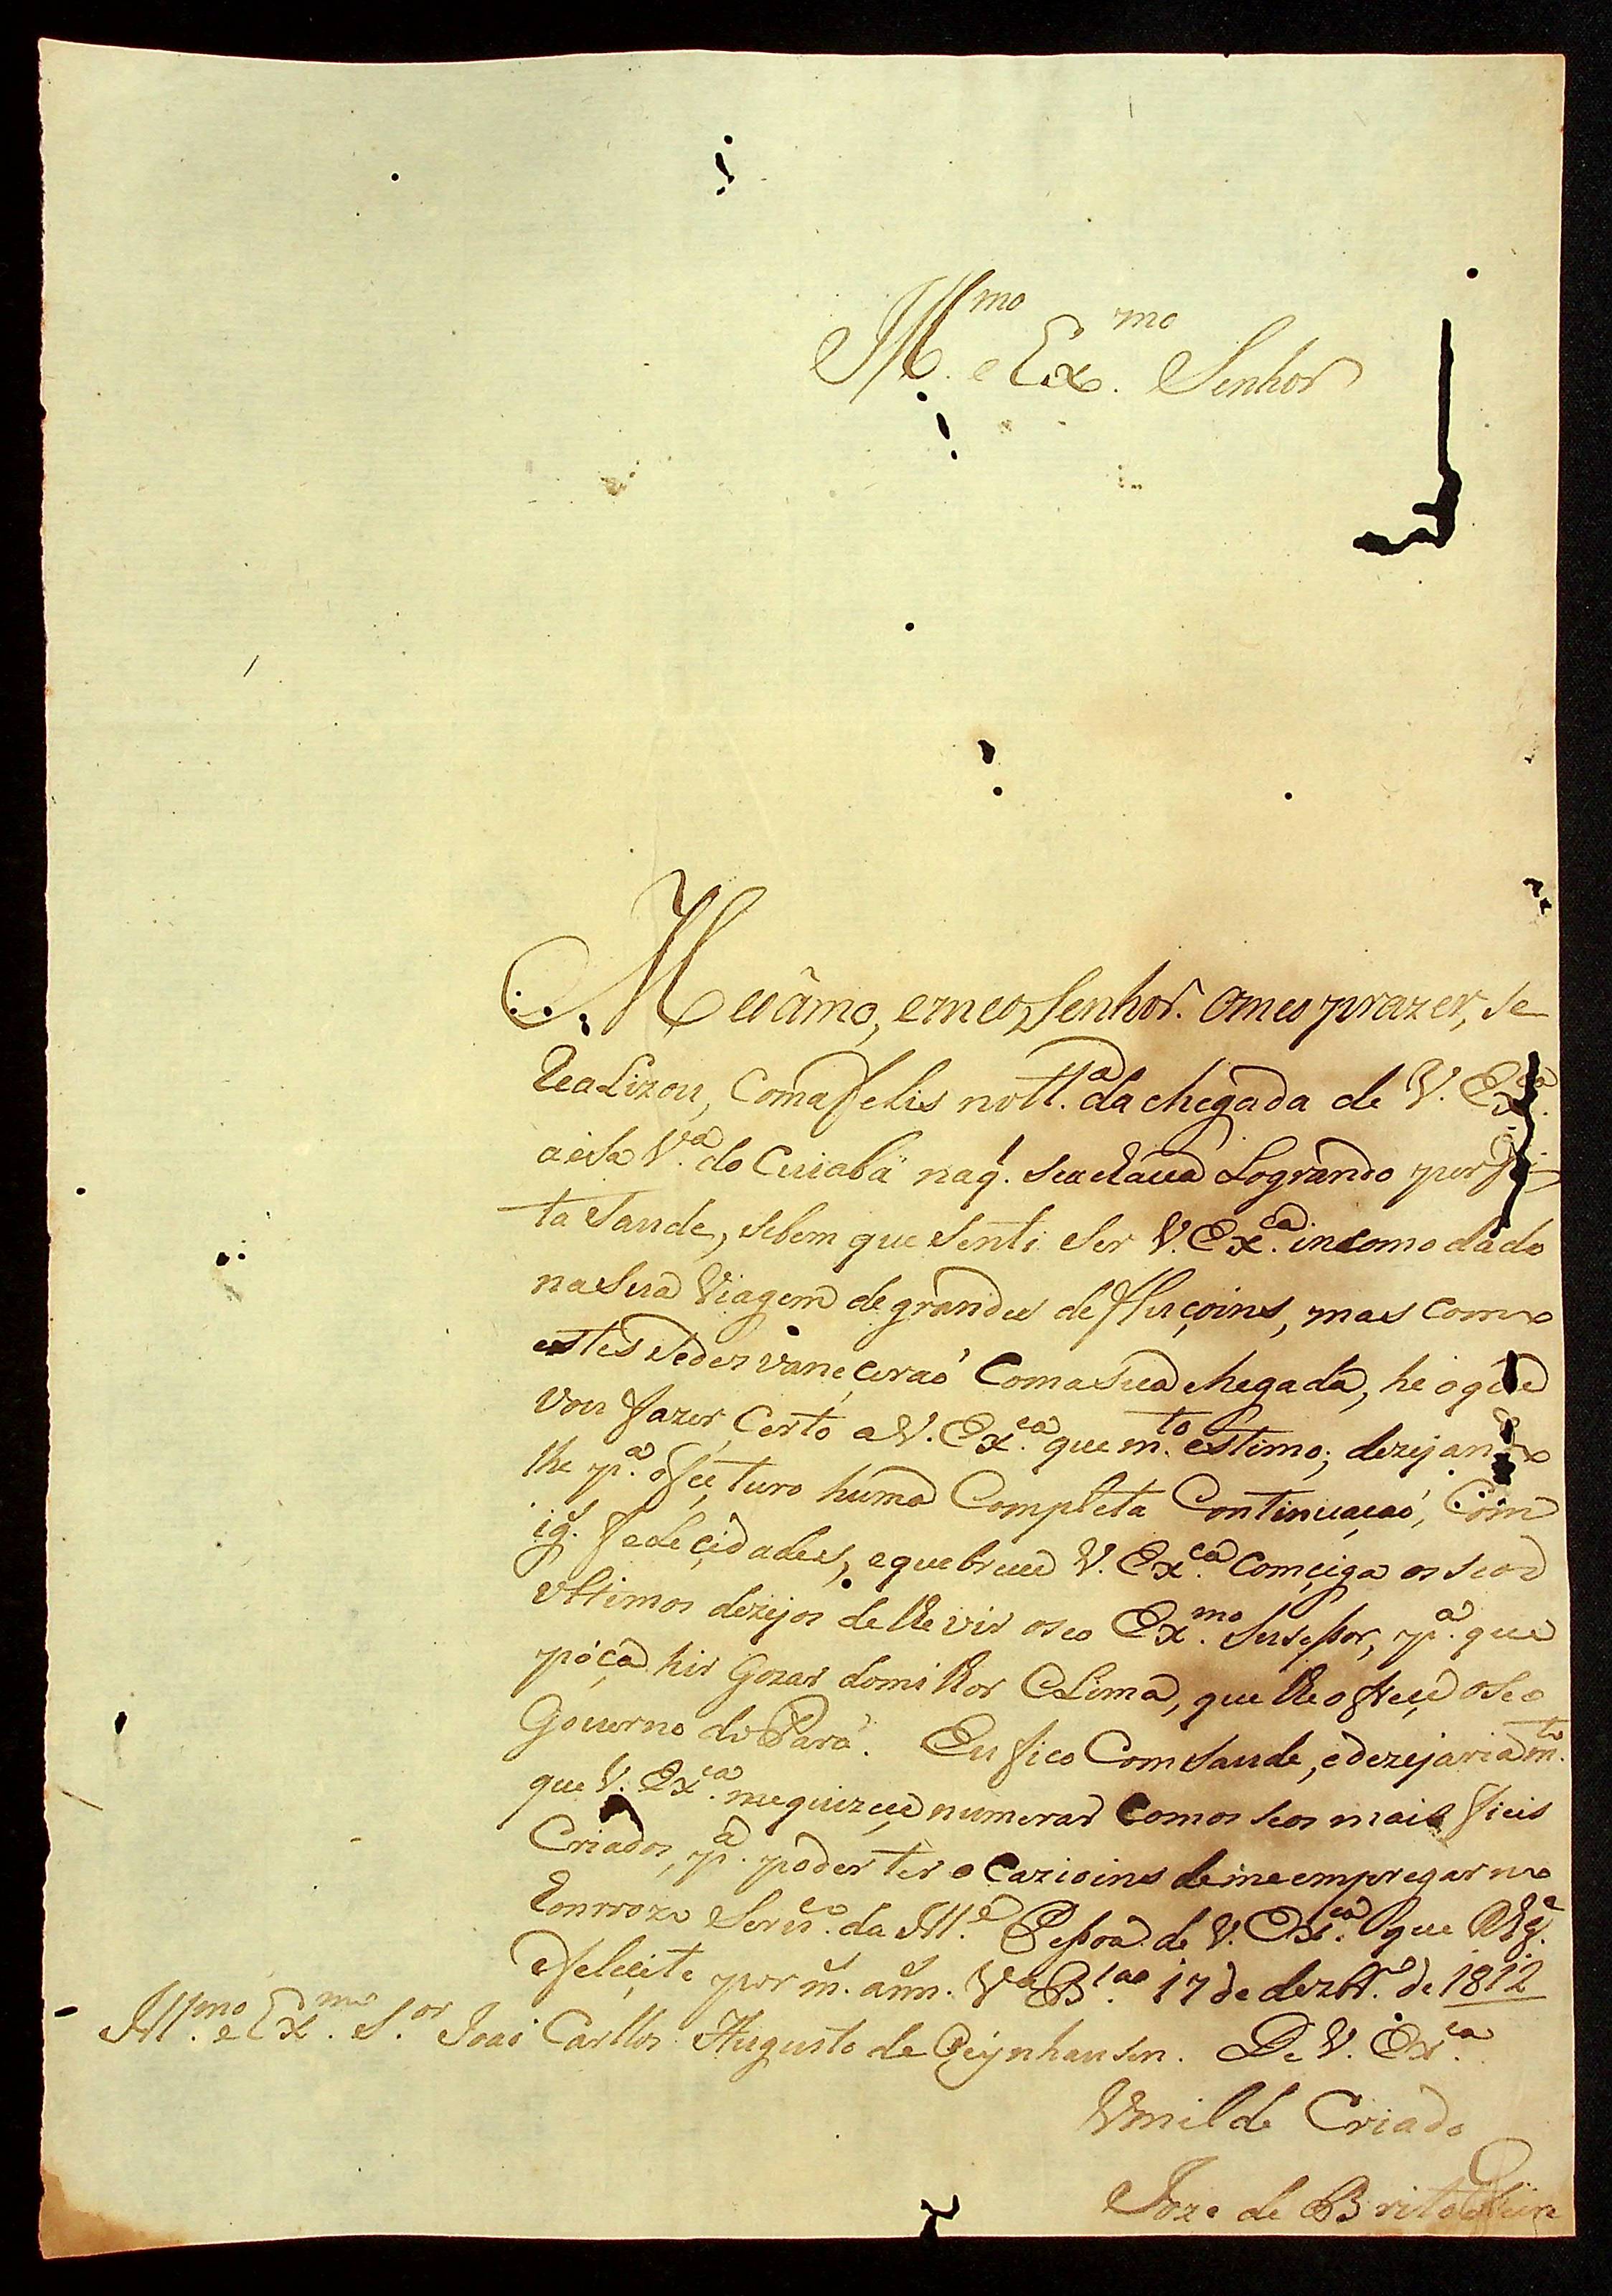 Ill.mo e Ex.mo Senhor
Meu âmo, e meo Senhor. O meo prazer, se
Realizou, Com a felis nott.a da chegada de V. Ex.ca
a eisa V.a do Cuiabá na q. se achava Logrando perfei-
ta Saude, se bem que senti Ser V. Ex.ca incomodado
na sua Viagem de grandes defluçoins, mas como
estes se desvaneceraó Com a sua chegada, he o que
vou fazer Certo a V. Ex.ca que m.to estimo; dezejando
lhe p.a o fucturo huma Completa Continuaçaó, Com
ig. feleçidades, e que breve V. Ex.ca Comçiga os seos
ultimos dezejos de lhe vir o seo Ex.mo Susesor, p.a que
póça hir Gozar do milhor Clima, que lhe ofreçe o seo
Governo do Pará. Eu fico Com saude, e dezejaria m.to
que V. Ex.ca me quizeçe numerar Com os seos mais fieis
Criados, p.a poder ter ocazioins de me empregar no
Honrrozo Servi.o da Ill.e Pessoa de V. Ex.ca que D.s g.e
e feleçite por m.s ann.s V.a B.la 17 de dezbr.o de 1812
Ill.mo e Ex.mo S.or Joaó Carllos Augusto de Oeÿnhausen. De V. Ex.ca
Vmilde Criado
Joze de Brito Freire